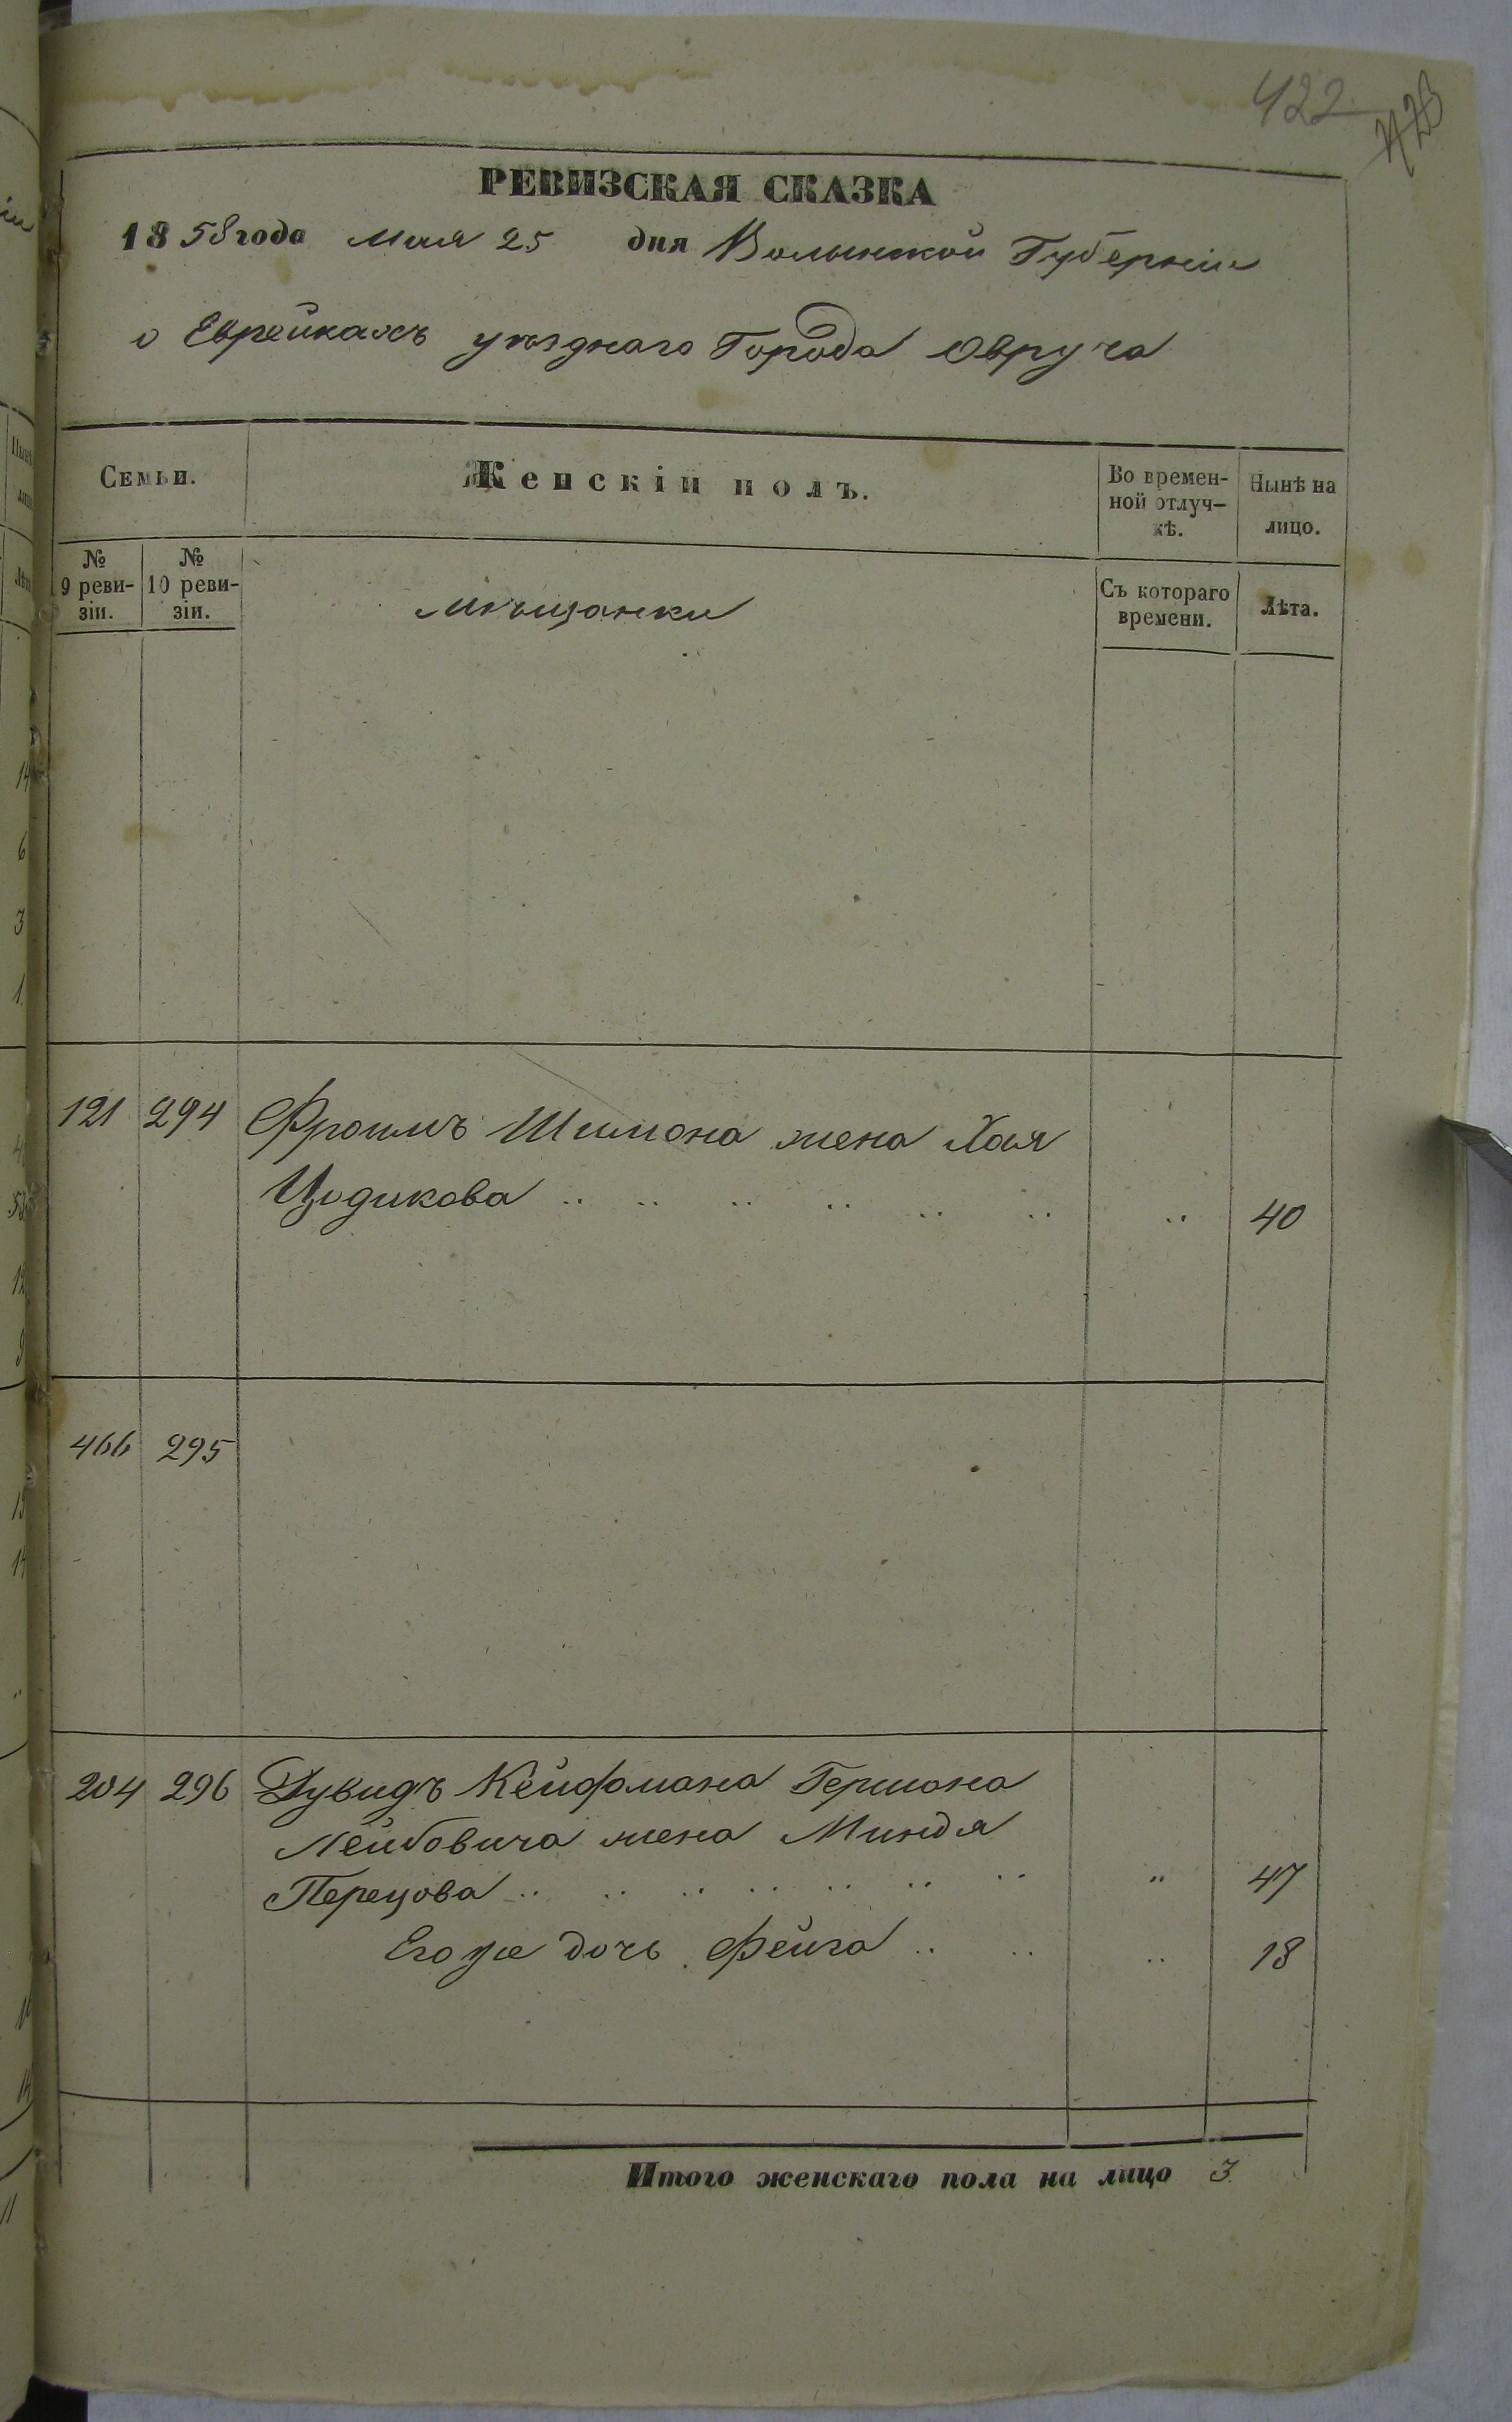 422
423
РЕВИЗСКАЯ СКАЗКА
1858 года Мая 25 дня Волынской Губерніи
о Еврейкахъ уѣзднаго Города Овруча
Семьи.
Женскій полъ.
Во времен-
ной отлуч-
кѣ.
Нынѣ на
лицо.
№
9 реви-
зіи.
№
10 реви-
зіи.
Мѣщанки
Съ котораго
времени.
Лѣта.
121 294 Фроимъ Шимона жена Хая
Цодикова .. .. .. .. .. .. .. 40
466 295
204 296 Дувидъ Кейфмана Гершона
Лейбовича жена Миндя
Перецова .. .. .. .. .. .. .. .. 47
Его же дочь Фейга .. .. .. 18
Итого женскаго пола на лицо 3